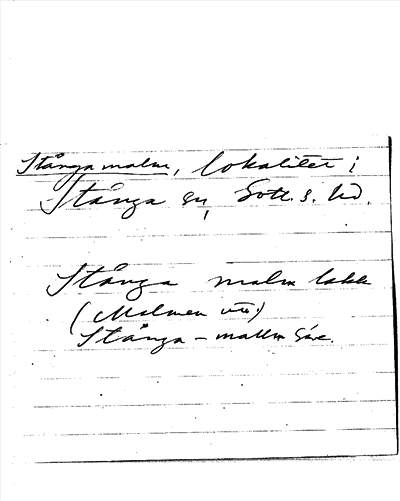 Stånga malm, lokalitet i
Stånga sn, Gotl. s. hd.
Stånga malm
(Malmen
Stånga - mallm Säve.